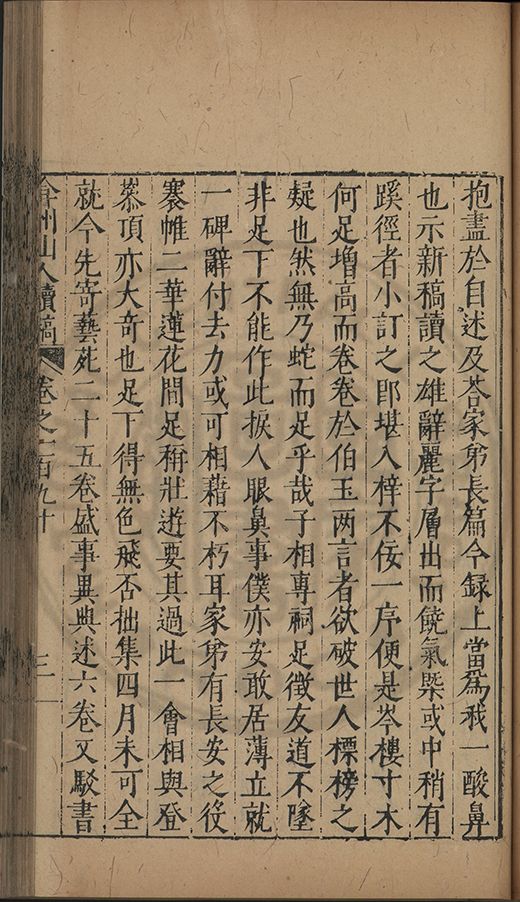 抱盡於自述及荅家弟長篇今録上當爲我一酸鼻
也示新稿讀之雄辭麗字層出而饒氣槩或中稍有
蹊徑者小訂之郎堪入梓不佞一序便是岑樓寸木
何足增高而卷卷於伯玉两言者欲破世人標榜之
疑也然無乃蛇而足乎哉子相專祠足徵友道不墜
非足下不能作此捩人眼鼻事僕亦安敢居薄立就
一碑辭付去力或可相藉不朽耳家弟有長安之役
褰帷二華蓮花間足稱壯遊要其過此一會相與登
泰頂亦大奇也足下得無色飛否拙集四月未可全
就今先寄藝苑二十五卷盛事異典述六卷又駁書
弇州山人續稿 卷之一百九十 三